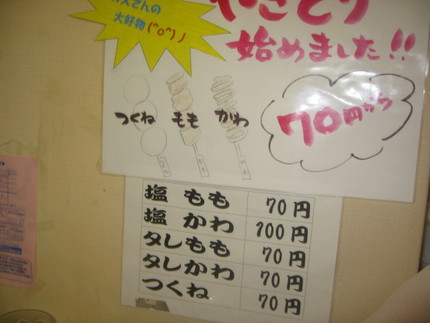 大好物(^o^)丿
やきとり
始めました!!
つくね もも かわ
70円から
塩 もも 70円
塩 かわ 100円
タレもも 70円
タレかわ 70円
つくね 70円